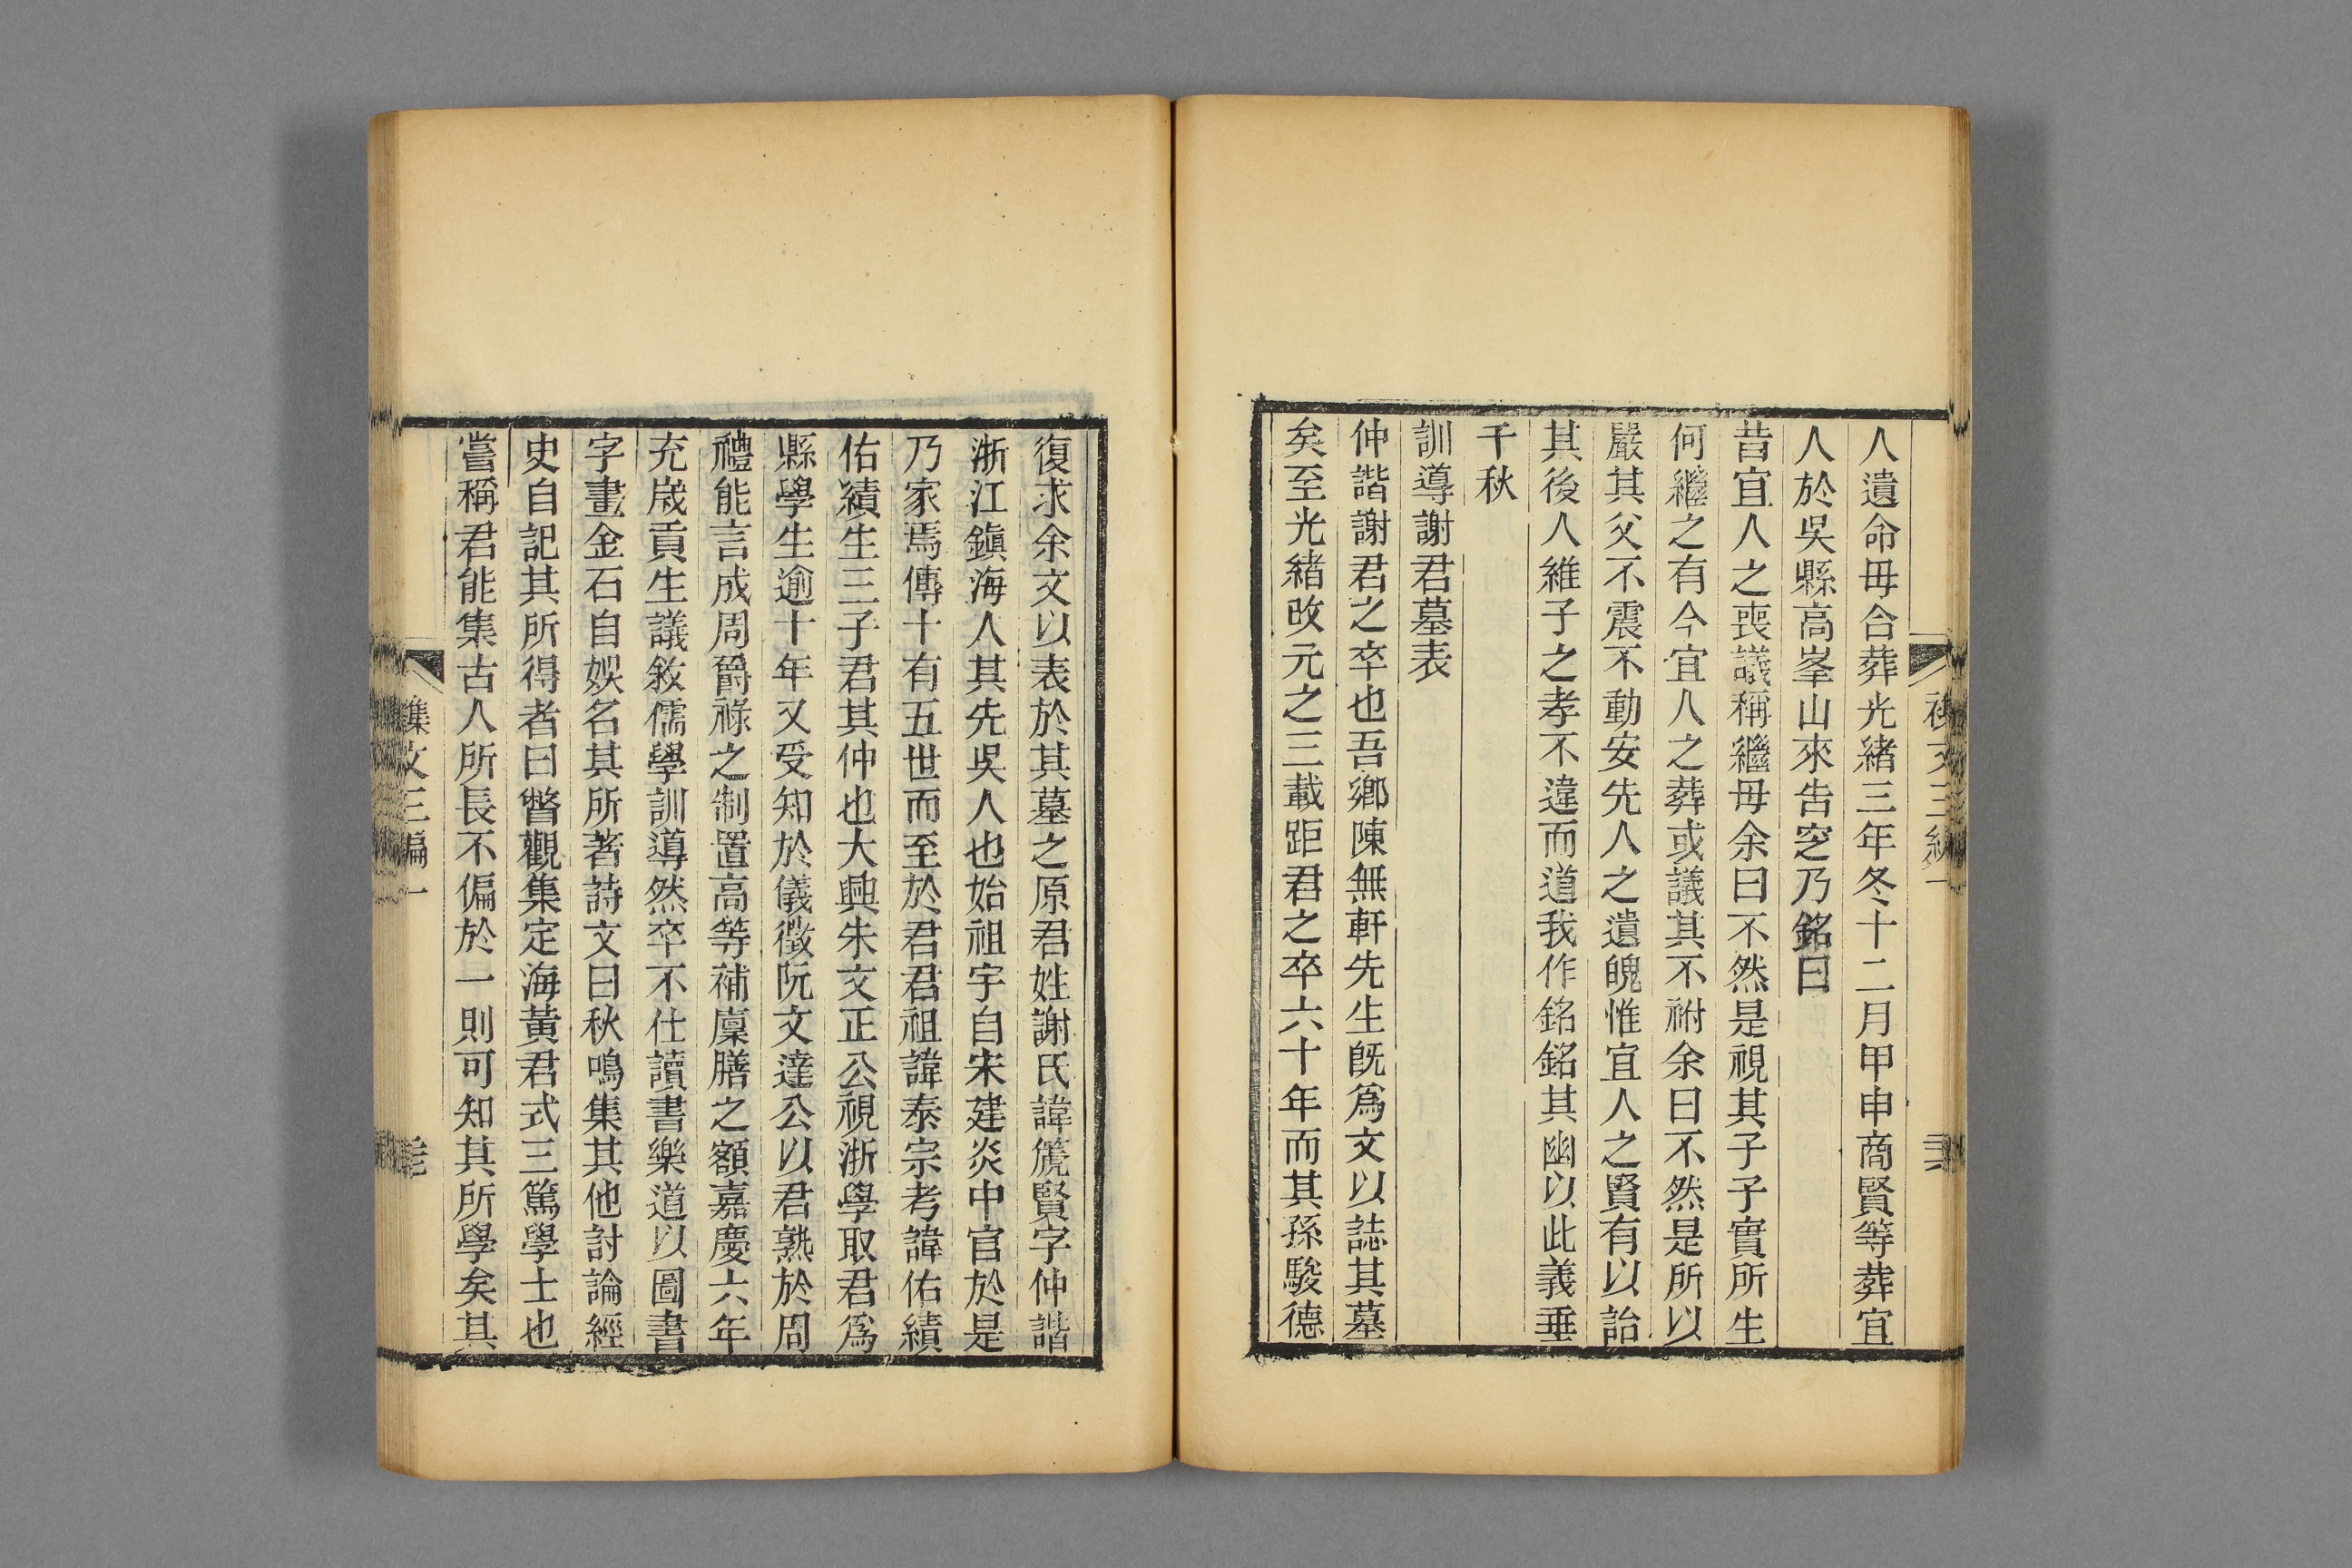 人遺命毋合葬光緒三年冬十二月甲申商賢等葬宜
人於吳縣高峯山來告窆乃銘曰
昔宜人之喪議稱繼毋余曰不然是視其子子實所生
何繼之有今宜人之葬或議其不祔余曰不然是所以
嚴其父不震不動安先人之遺魄惟宜人之賢有以詒
其後人維子之孝不違而道我作銘銘其幽以此義垂
千秋
訓導謝君墓表
仲諧謝君之卒也吾鄉陳無軒先生旣爲文以誌其墓
矣至光緒改元之三載距君之卒六十年而其孫駿德
復求余文以表於其墓之原君姓謝氏諱篪賢字仲諧
浙江鎭海人其先吳人也始祖宇自宋建炎中官於是
乃家焉傳十有五世而至於君君祖諱泰宗考諱佑績
佑績生三子君其仲也大興朱文正公視浙學取君爲
縣學生逾十年又受知於儀徵阮文達公以君熟於周
禮能言成周爵祿之制置高等補廩膳之額嘉慶六年
充歲貢生議敘儒學訓導然卒不仕讀書樂道以圖書
字畫金石自娛名其所著詩文曰秋鳴集其他討論經
史自記其所得者曰瞥觀集定海黃君式三篤學士也
嘗稱君能集古人所長不偏於一則可知其所學矣其